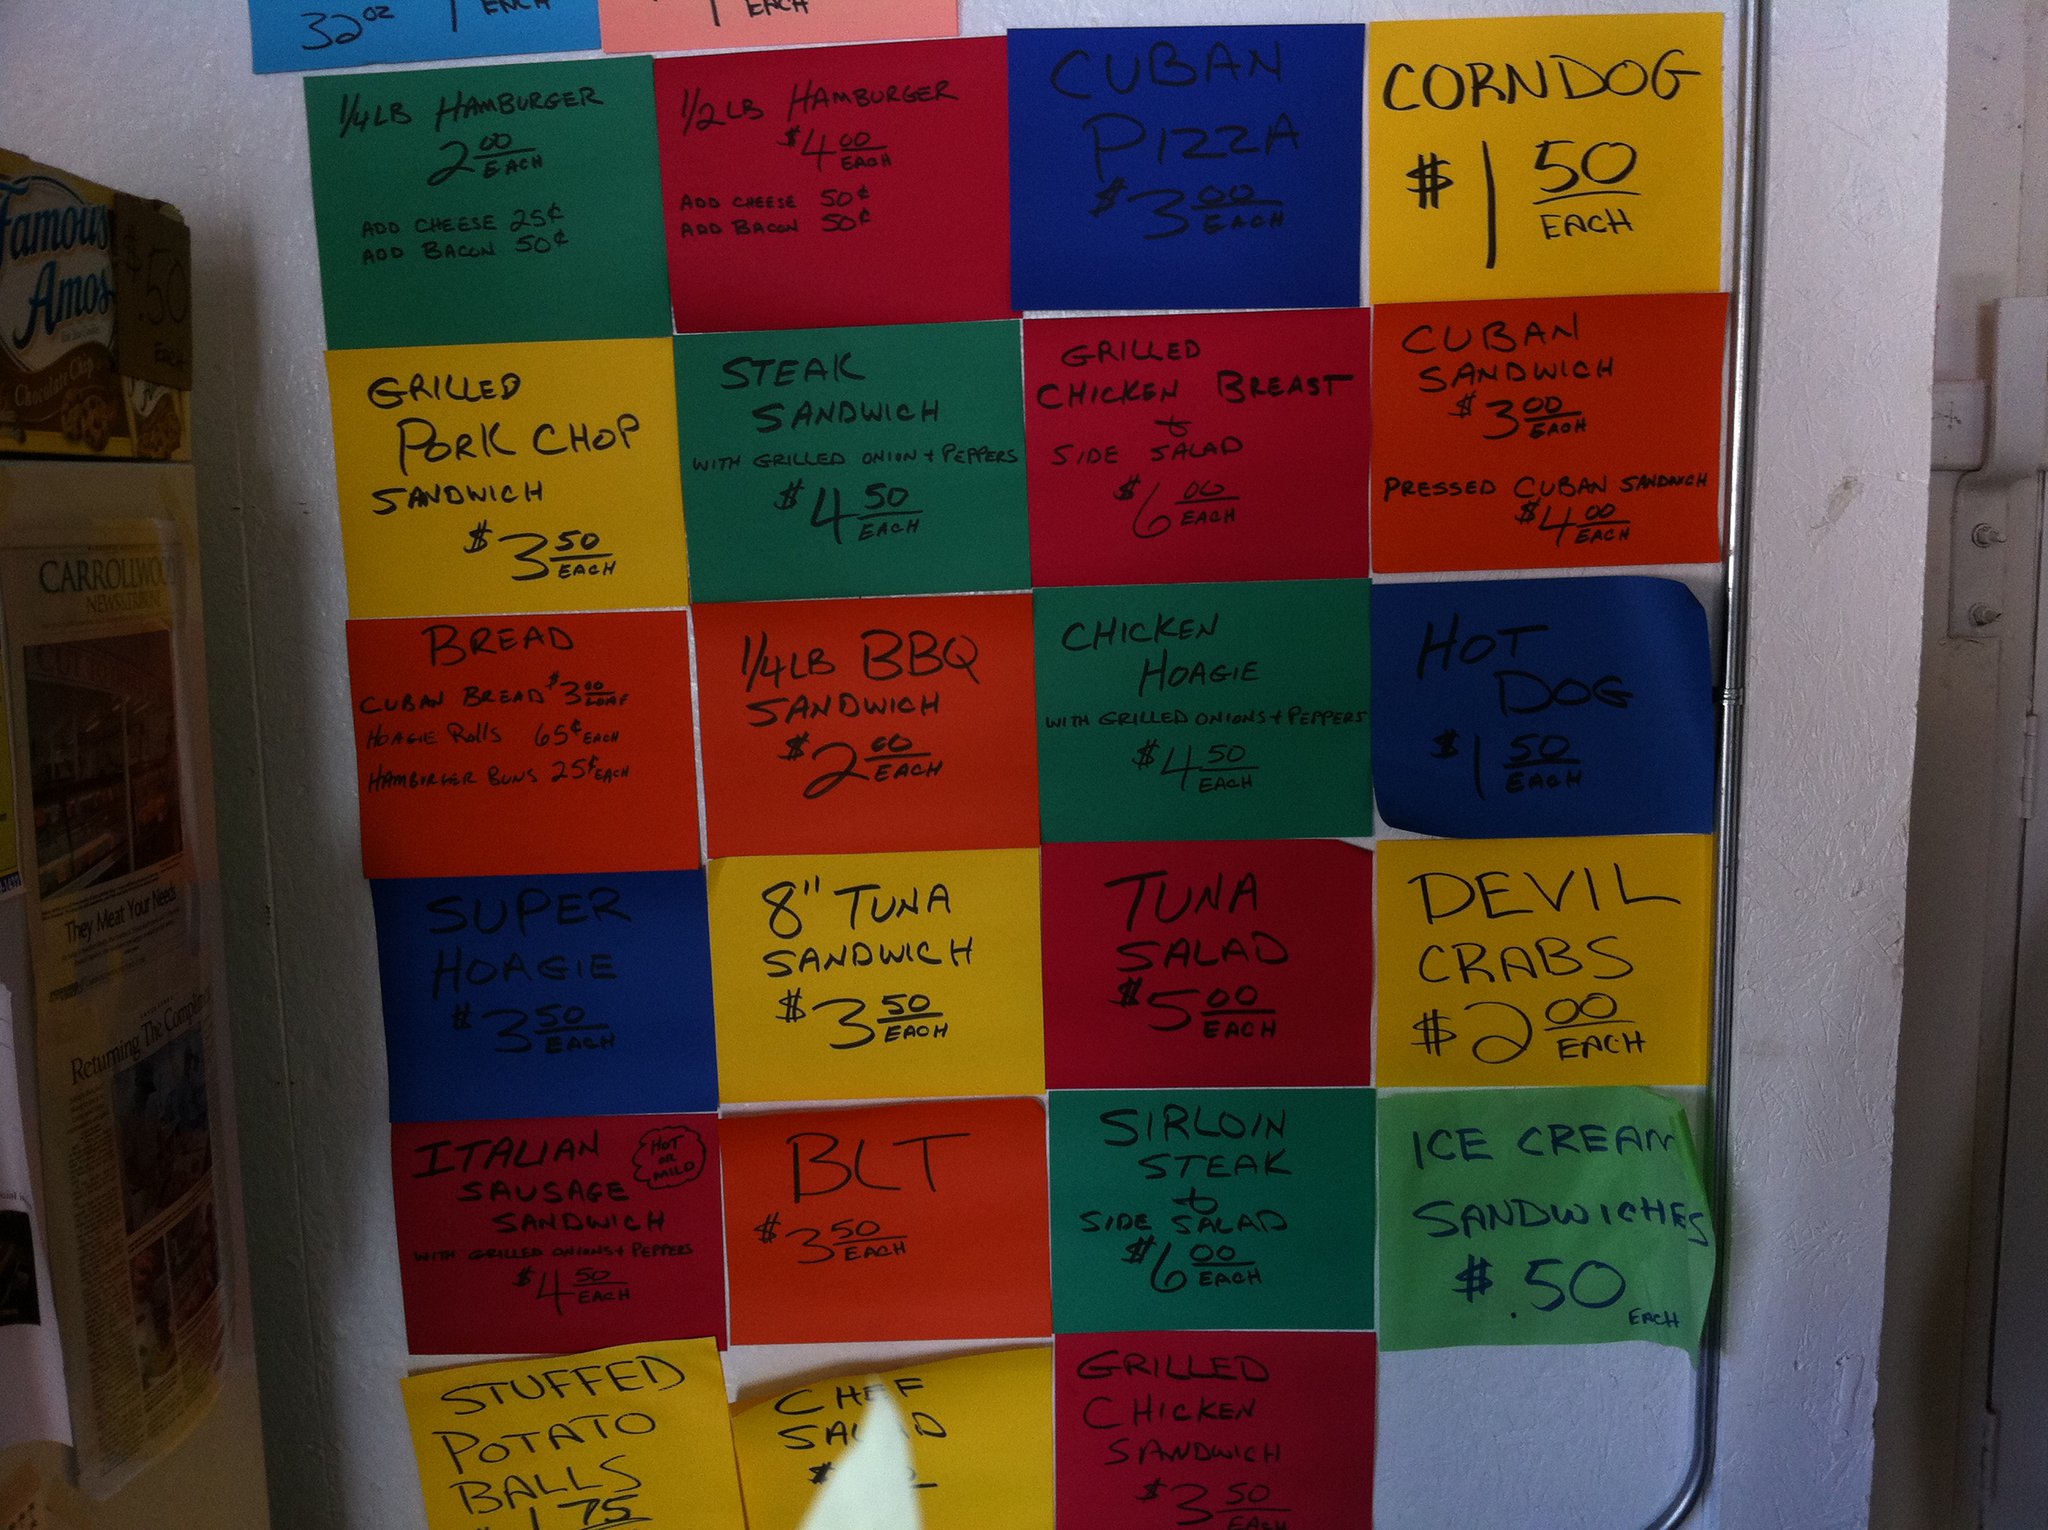 32 oz
EACH
EACH
1/4 LB HAMBURGER
2 00
EACH
ADD CHEESE 25¢
ADD BACON 50¢
1/2 LB HAMBURGER
$4 00
EACH
ADD CHEESE 50¢
ADD BACON 50¢
CUBAN
PIZZA
$3 00
EACH
CORNDOG
$1 50
EACH
GRILLED
PORK CHOP
SANDWICH
$3 50
EACH
STEAK
SANDWICH
WITH GRILLED ONION + PEPPERS
$4 50
EACH
GRILLED
CHICKEN BREAST
&
SIDE SALAD
$6 00
EACH
CUBAN
SANDWICH
$3 00
EACH
PRESSED CUBAN SANDWICH
$4 00
EACH
BREAD
CUBAN BREAD $3 00 LOAF
HOAGIE Rolls 65¢ EACH
HAMBURGER BUNS 25¢ EACH
1/4 LB BBQ
SANDWICH
$2 00
EACH
CHICKEN
HOAGIE
WITH GRILLED ONIONS + PEPPERS
$4 50
EACH
HOT
DOG
$1 50
EACH
SUPER
HOAGIE
$3 50
EACH
8" TUNA
SANDWICH
$3 50
EACH
TUNA
SALAD
$5 00
EACH
DEVIL
CRABS
$2 00
EACH
ITALIAN
SAUSAGE
SANDWICH
HOT
OR
MILD
WITH GRILLED ONIONS + PEPPERS
$4 50
EACH
BLT
$3 50
EACH
SIRLOIN
STEAK
&
SIDE SALAD
$6 00
EACH
ICE CREAM
SANDWICHES
$.50
EACH
STUFFED
POTATO
BALLS
$1 75
CHEF
GRILLED
CHICKEN
SANDWICH
$3 50
EACH
Famous
Amos
Chocolate Chip
.50
EACH
CARROLLWOOD
NEWS&TRIBUNE
They Meat Your Needs
Returning The